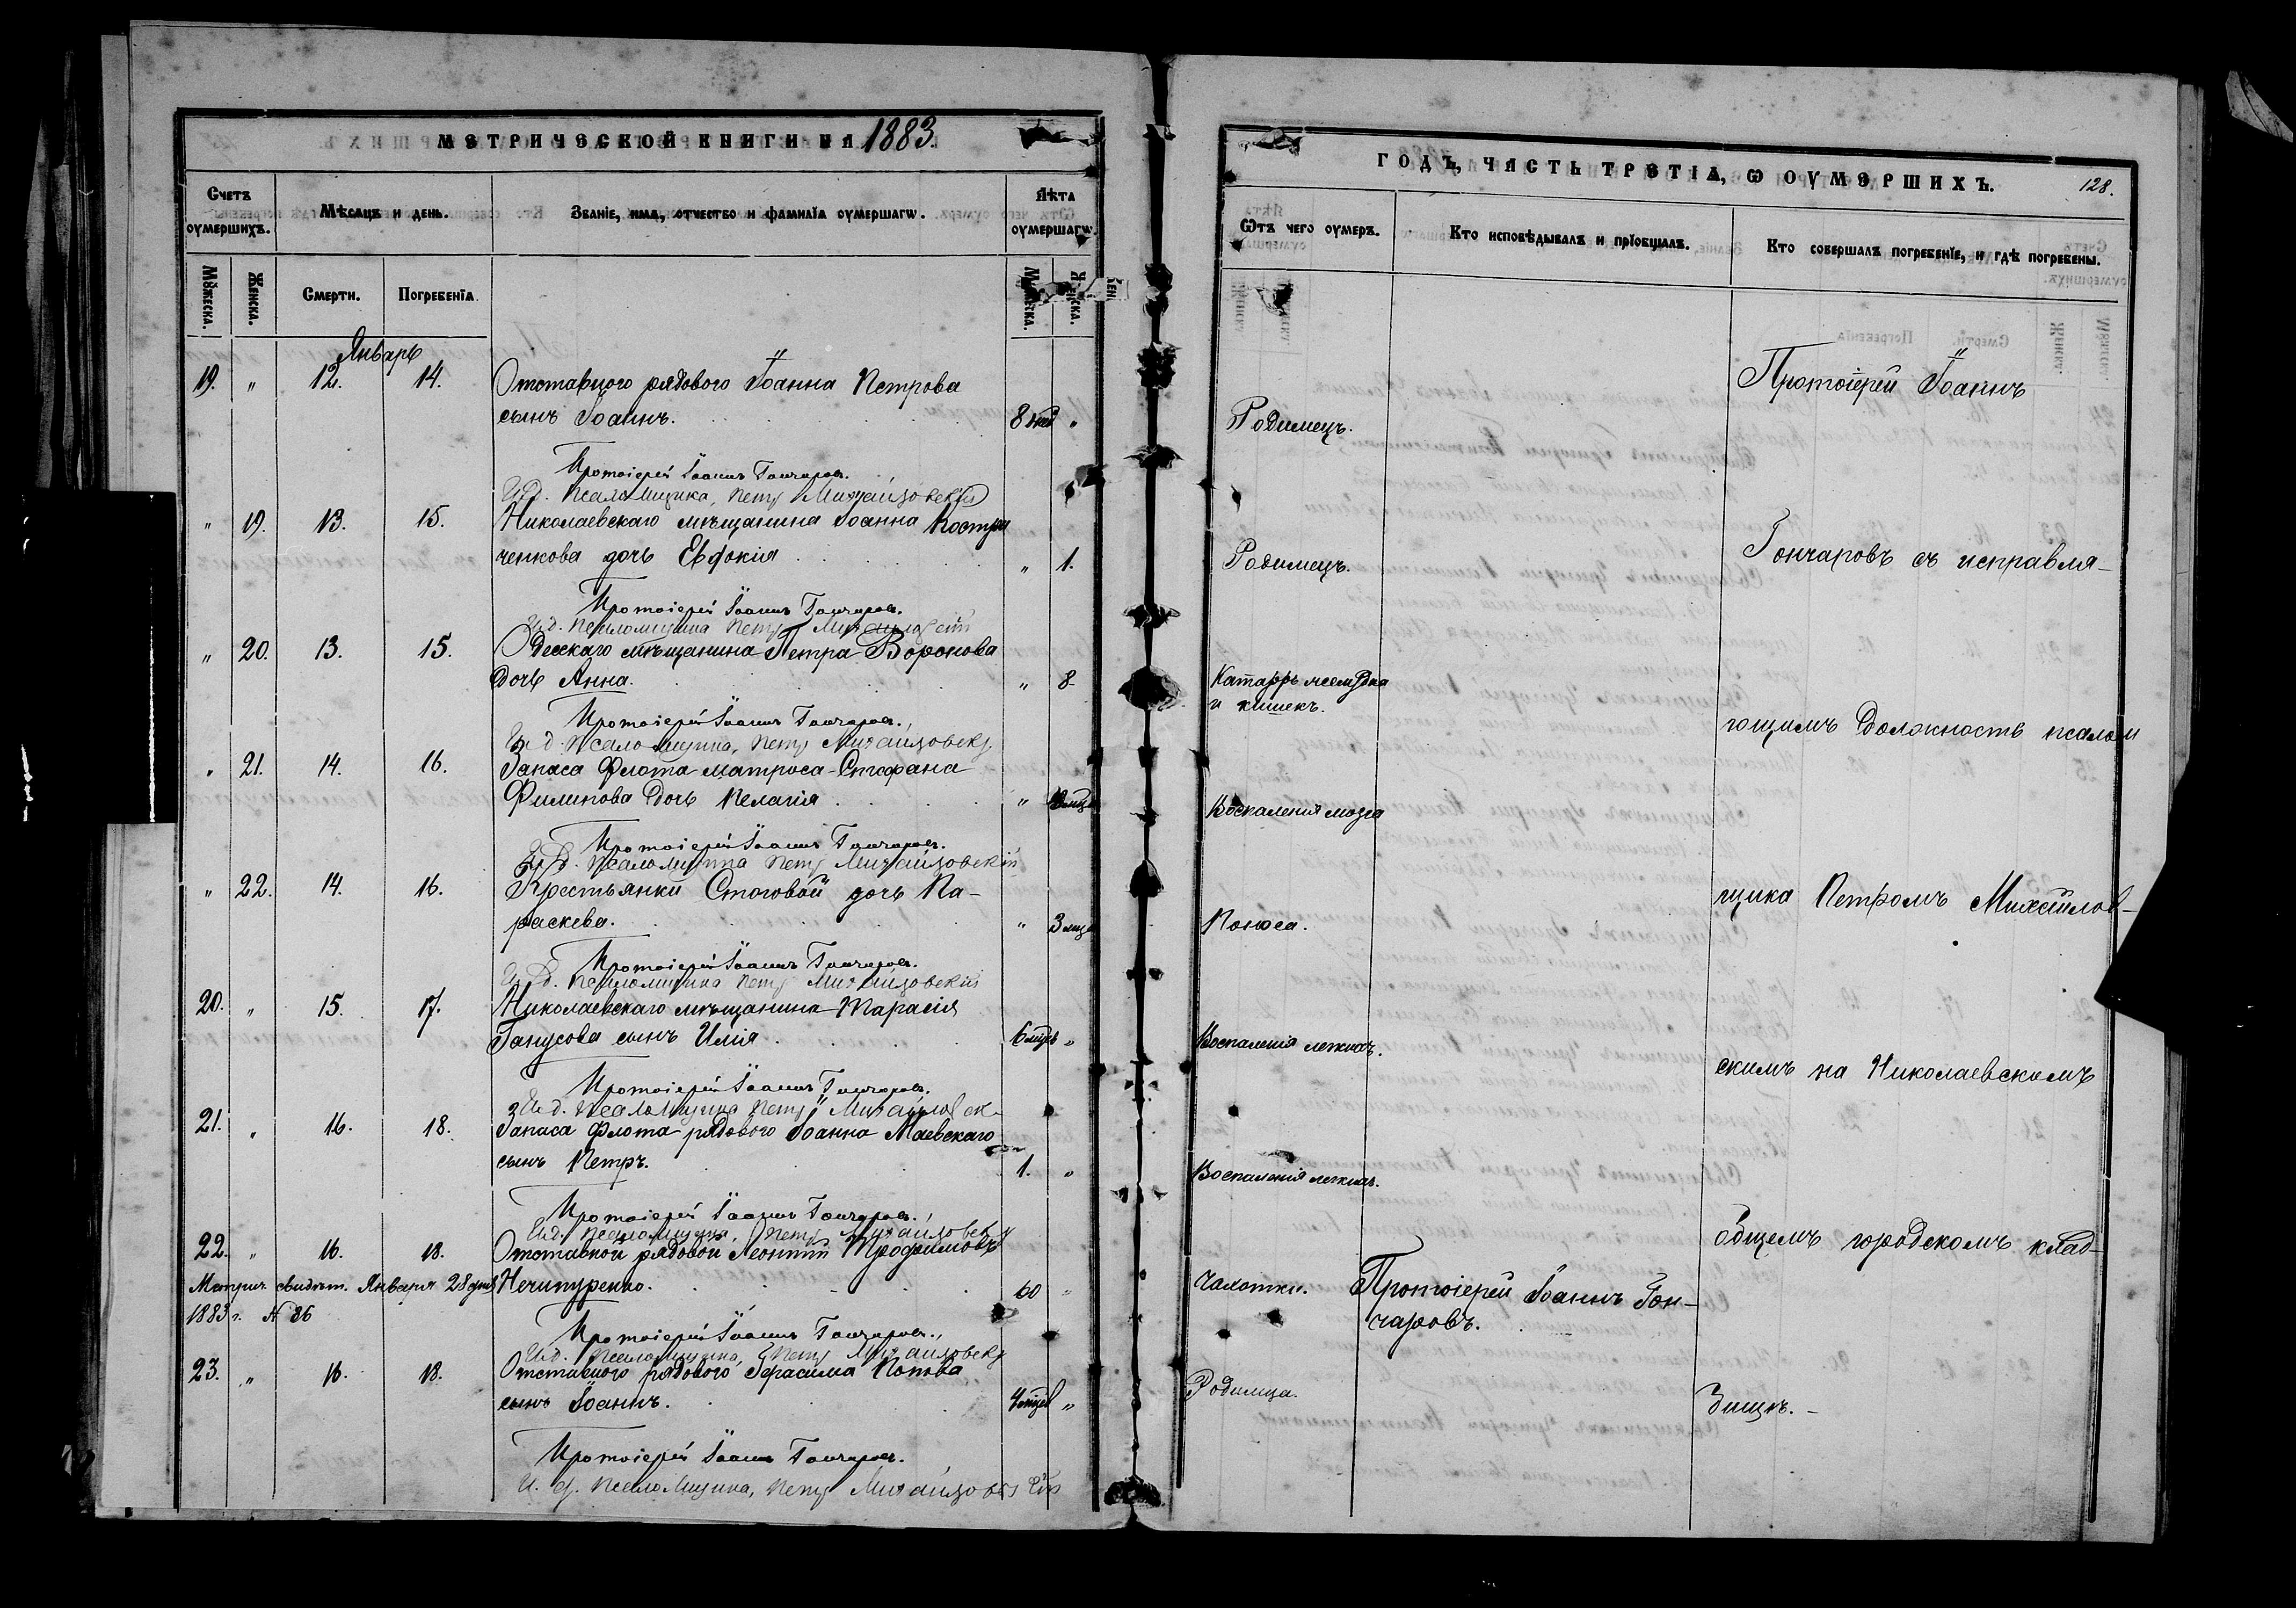 МЕТРИЧЕСКОЙ КНИГИ НА 1883.
Счетъ оумершихъ.
Мѣсяцъ и день.
Званіе, имя, отчество и фамилія оумершагѡ.
Лѣта оумершагѡ.
Мꙋжеска.
Женска.
Смерти.
Погребенія.
Мꙋжеска.
Женска.
Январь
19. " 12. 14. Отставного рядового Іоанна Петрова
сынъ Іоаннъ. 8 "
Протоіерей Іоаннъ Гончаровъ.
И. д. Псаломщика, Петр Михайловскій
" 19. 13. 15. Николаевскаго мѣщанина Іоанна
ченкова дочь Евдокія " 1.
Протоіерей Іоаннъ Гончаровъ.
И. д. Псаломщика Петр Михайловскій
" 20. 13. 15. Одесскаго мѣщанина Петра Воронова
дочь Анна. " 8
Протоіерей Іоаннъ Гончаровъ.
И. д. Псаломщика, Петр Михайловскій
" 21. 14. 16. Запаса флота матроса Стефана
Филипова дочь Пелагія "
Протоіерей Іоаннъ Гончаровъ.
И. д. Псаломщика Петр Михайловскій
" 22. 14. 16. Крестьянки Стоговой дочь Па-
раскева. " 3 мца
Протоіерей Іоаннъ Гончаровъ.
И. д. Псаломщика Петр Михайловскій
20. " 15. 17. Николаевскаго мѣщанина Тарасія
сынъ Илія. 6 мцв "
Протоіерей Іоаннъ Гончаровъ.
И. д. Псаломщика Петр Михайловск
21. " 16. 18. Запаса флота рядового Іоанна Маевскаго
сынъ Петръ. 1. "
Протоіерей Іоаннъ Гончаровъ.
И. д. Псаломщика, Петр Михайловск
22. " 16. 18. Отставной рядовой Леонтій Трофимовъ
Метрич. свидѣт. Января 28 дня Нечипуренко. 60 "
1883 г. № 86
Протоіерей Іоаннъ Гончаровъ.
И. д. Псаломщика, Петр Михайловск
23. " 16. 18. Отставного рядового Герасима Попова
сынъ Іоаннъ. "
Протоіерей Іоаннъ Гончаровъ.
И. д. Псаломщика, Петр Михайловскій
ГОДЪ, ЧАСТЬ ТРЕТІЯ, Ѡ ОУМЕРШИХЪ.
128.
Ѿтъ чего оумеръ.
Кто исповѣдывалъ и пріобщалъ.
Кто совершалъ погребеніе, и гдѣ погребены.
Протоіерей Іоаннъ
Родимецъ.
Гончаровъ съ исправля-
Родимецъ.
Катарръ желудка
и кишекъ.
ющимъ должность псалом
Воспаленія мозга
щика Петромъ Михайлов-
Поноса.
Воспаленія легкихъ.
скимъ на Николаевскомъ
Воспаленія легкихъ.
общемъ городскомъ клад-
Чахотки.
Протоіерей Іоаннъ Гон-
чаровъ.
Родимца.
бищѣ. -